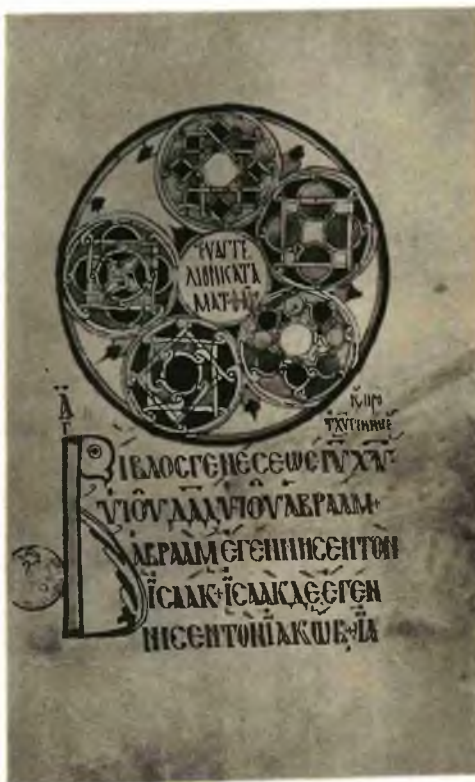 ΕΥΑΓΓΕ
ΛΙΟΝ ΚΑΤΑ
ΜΑΤΘ
ΒΙΒΛΟΣ ΓΕΝΕΣΕΩΣ ΙΥ ΧΥ
ΥΙΟΥ ΔΑΔ ΥΙΟΥ ΑΒΡΑΑΜ+
ΑΒΡΑΑΜ ΕΓΕΝΝΗΣΕΝ ΤΟΝ
ΪΣΑΑΚ+ΪΣΑΑΚ ΔΕ ΕΓΕΝ
ΝΗΣΕΝ ΤΟΝ ΪΑΚΩΒ+ΪΑ